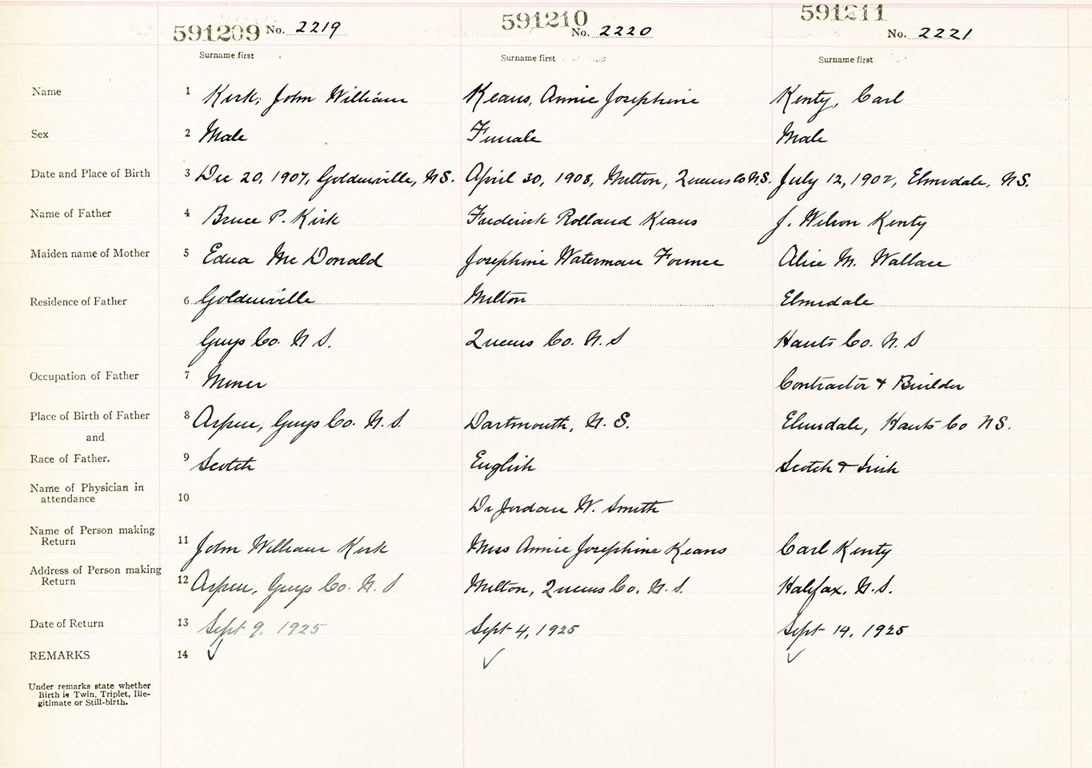 591209 No. 2219 591210 No. 2220 591211 No. 2221
Surname first Surname first Surname first
Name 1 Kirk, John William Keans, Annie Josephine Kenty, Carl
Sex 2 Male Female Male
Date and Place of Birth 3 Dec 20, 1907, Goldenville, N.S. April 30, 1908, Milton, Queens Co N.S. July 12, 1902, Elmsdale, N.S.
Name of Father 4 Bruce P. Kirk Frederick Rolland Keans J. Wilson Kenty
Maiden name of Mother 5 Edna Mc Donald Josephine Waterman Alice M. Wallace
Residence of Father 6 Goldenville Milton Elmsdale
Guys Co. N S. Queens Co. N.S Hants Co. N.S
Occupation of Father 7 Miner Contractor & Builder
Place of Birth of Father 8 Aspen, Guys Co. N.S. Dartmouth, N.S. Elmsdale, Hants Co NS.
and
Race of Father. 9 Scotch English Scotch & Irish
Name of Physician in
attendance 10 Dr Jordan W. Smith
Name of Person making
Return 11 John William Kirk Miss Annie Josephine Keans Carl Kenty
Address of Person making
Return 12 Aspen, Guys Co. N.S Milton, Queens Co. N.S. Halifax, N.S.
Date of Return 13 Sept 9, 1925 Sept 4, 1925 Sept 14, 1925
REMARKS 14 ✓ ✓ ✓
Under remarks state whether
Birth is Twin, Triplet, Ille-
gitimate or Still-birth.